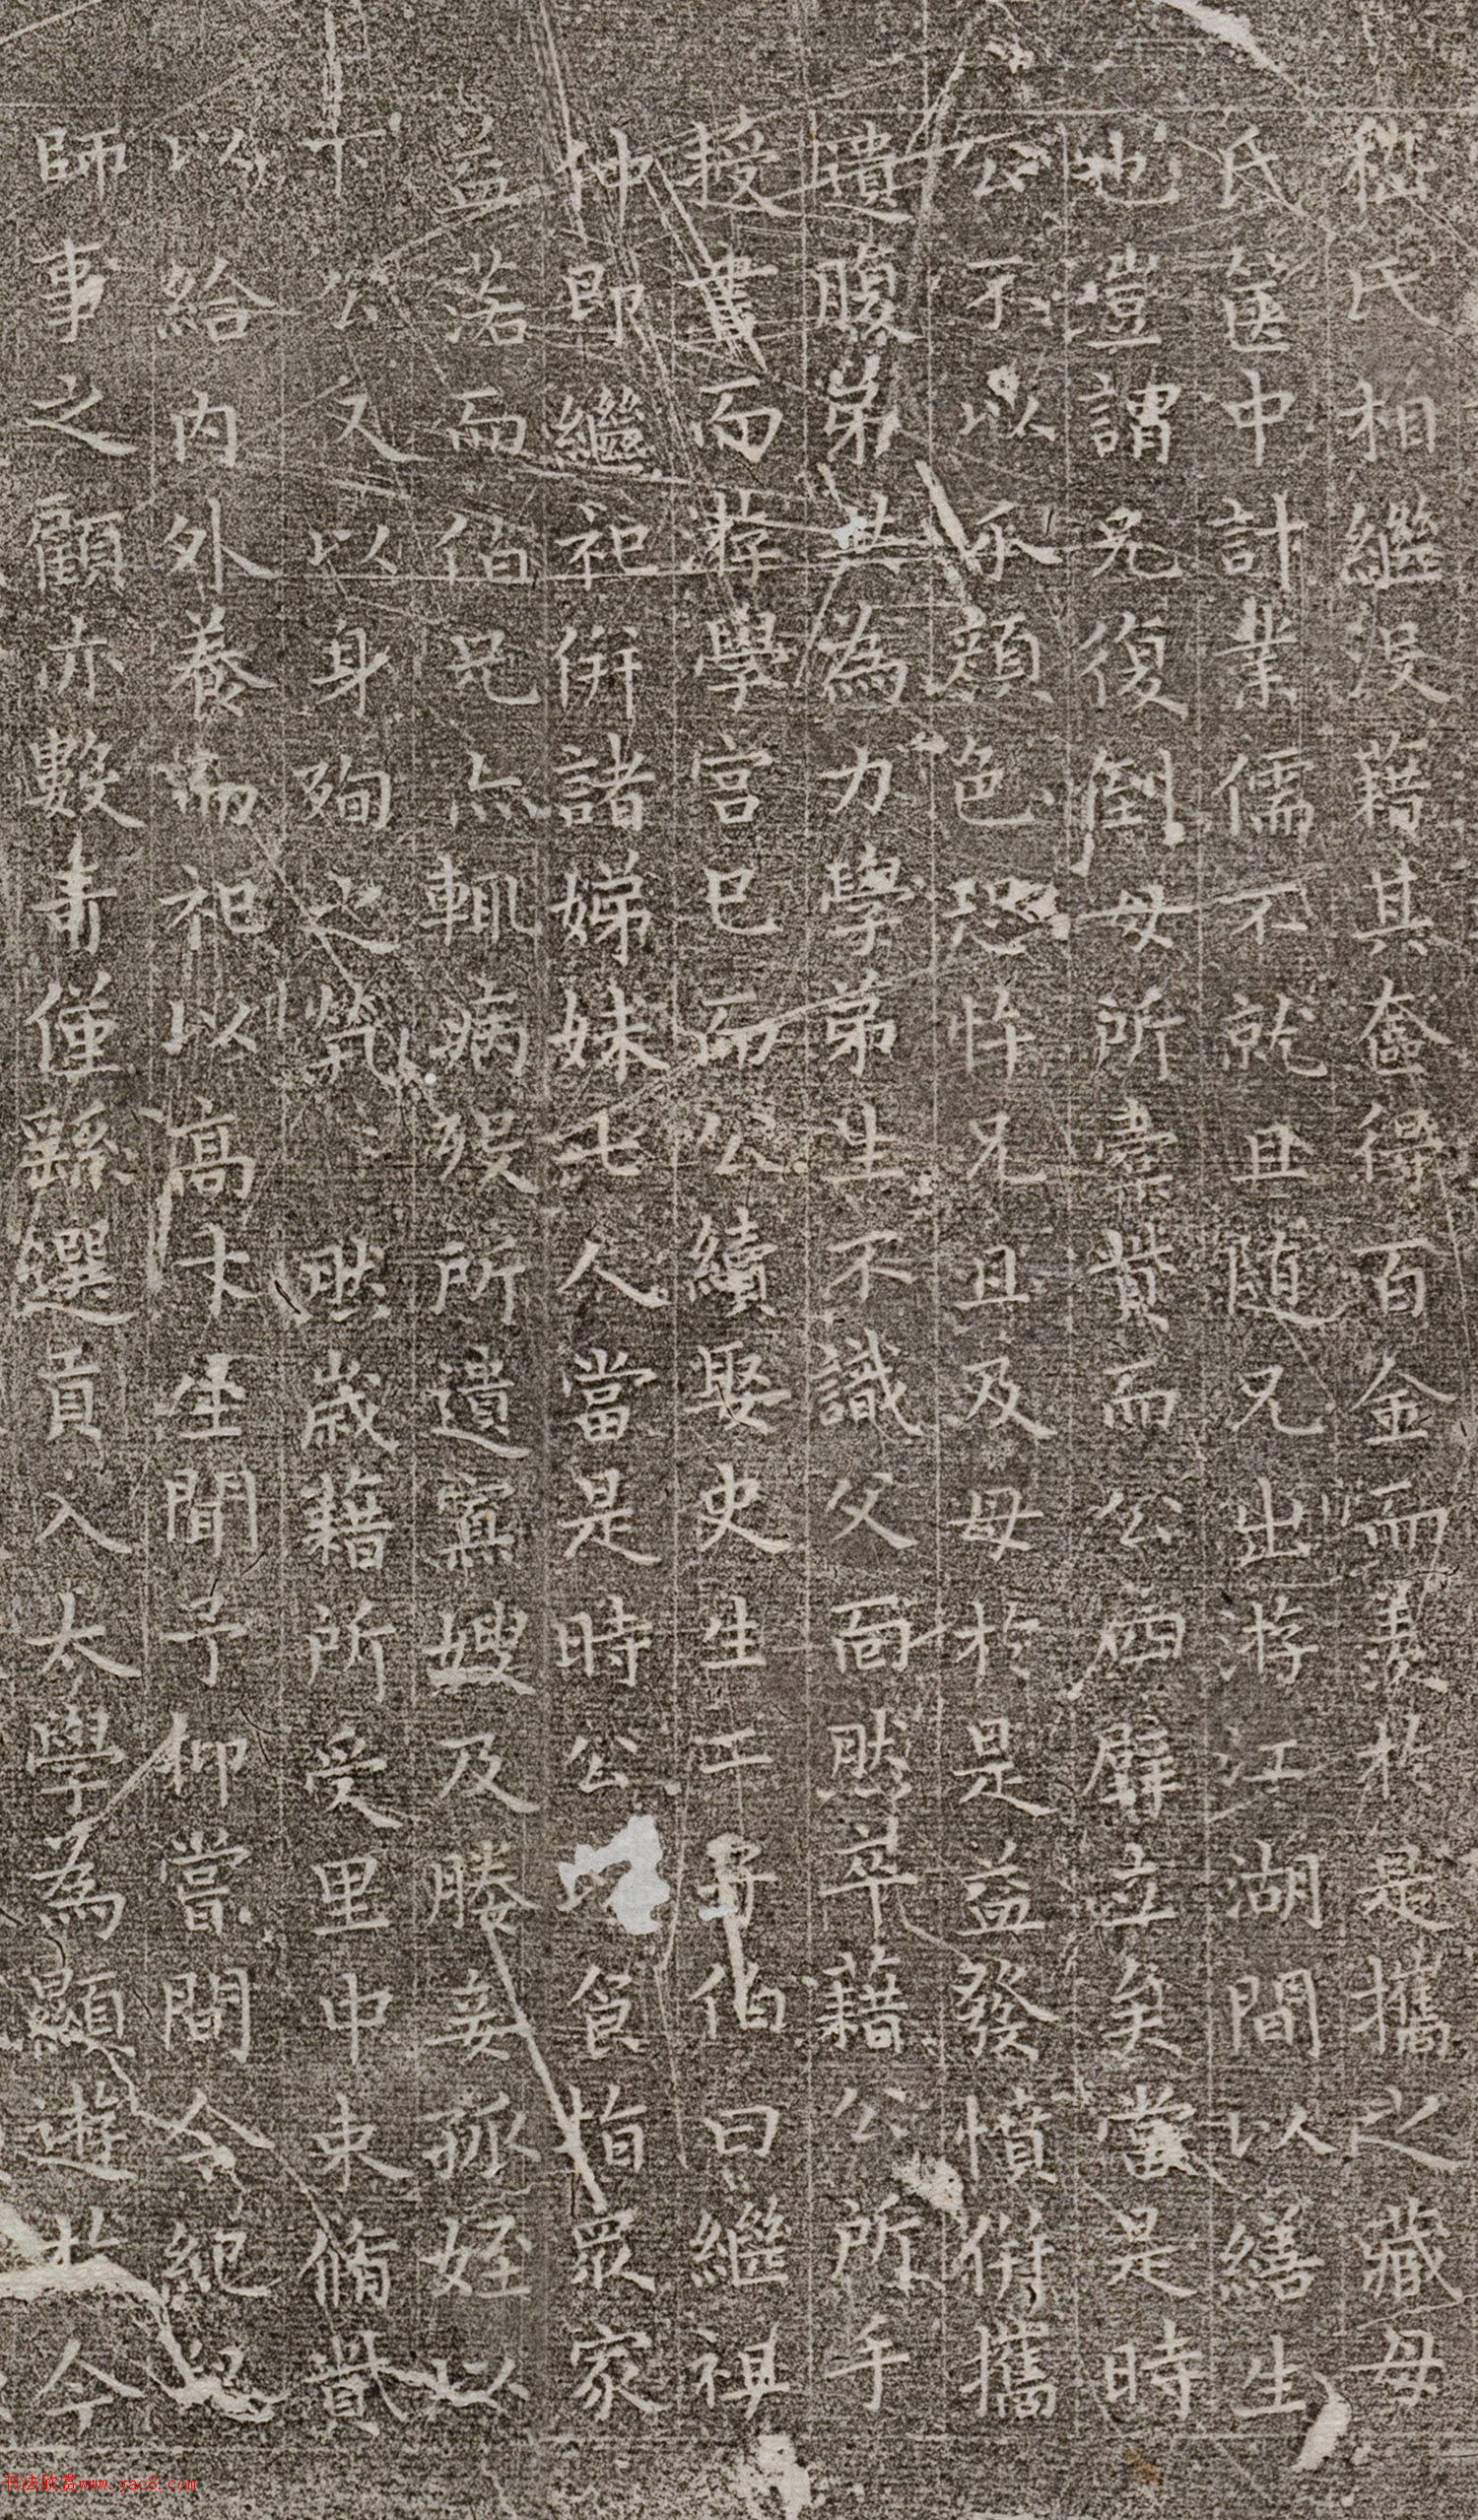 氏相繼没藉其奩得百金而羡於是攜之藏母
氏篋中計業儒不就且随兄出游江湖間以繕生
也豈謂兄復倒母所橐貲而公四壁立矣當是時
公不以示顔色恐忤兄且及母於是益發憤併攜
遺腹弟共為力學弟生不識父面然卒藉公所手
授書而游學宮已而公續娶史生子伯曰繼祖
仲即繼祀併諸娣妹七人當是時公食指眾家
益落而伯兄点輒病殁所遺寡嫂及媵妾孤姪以
下公又以身殉之煢然歲藉所受里中束脩貲
以給内外養而祀以高才生聞予仰嘗問今紀
師事之顧亦數奇僅繇選貢入太學為顯遊於今
书法欣赏www.yac8.com